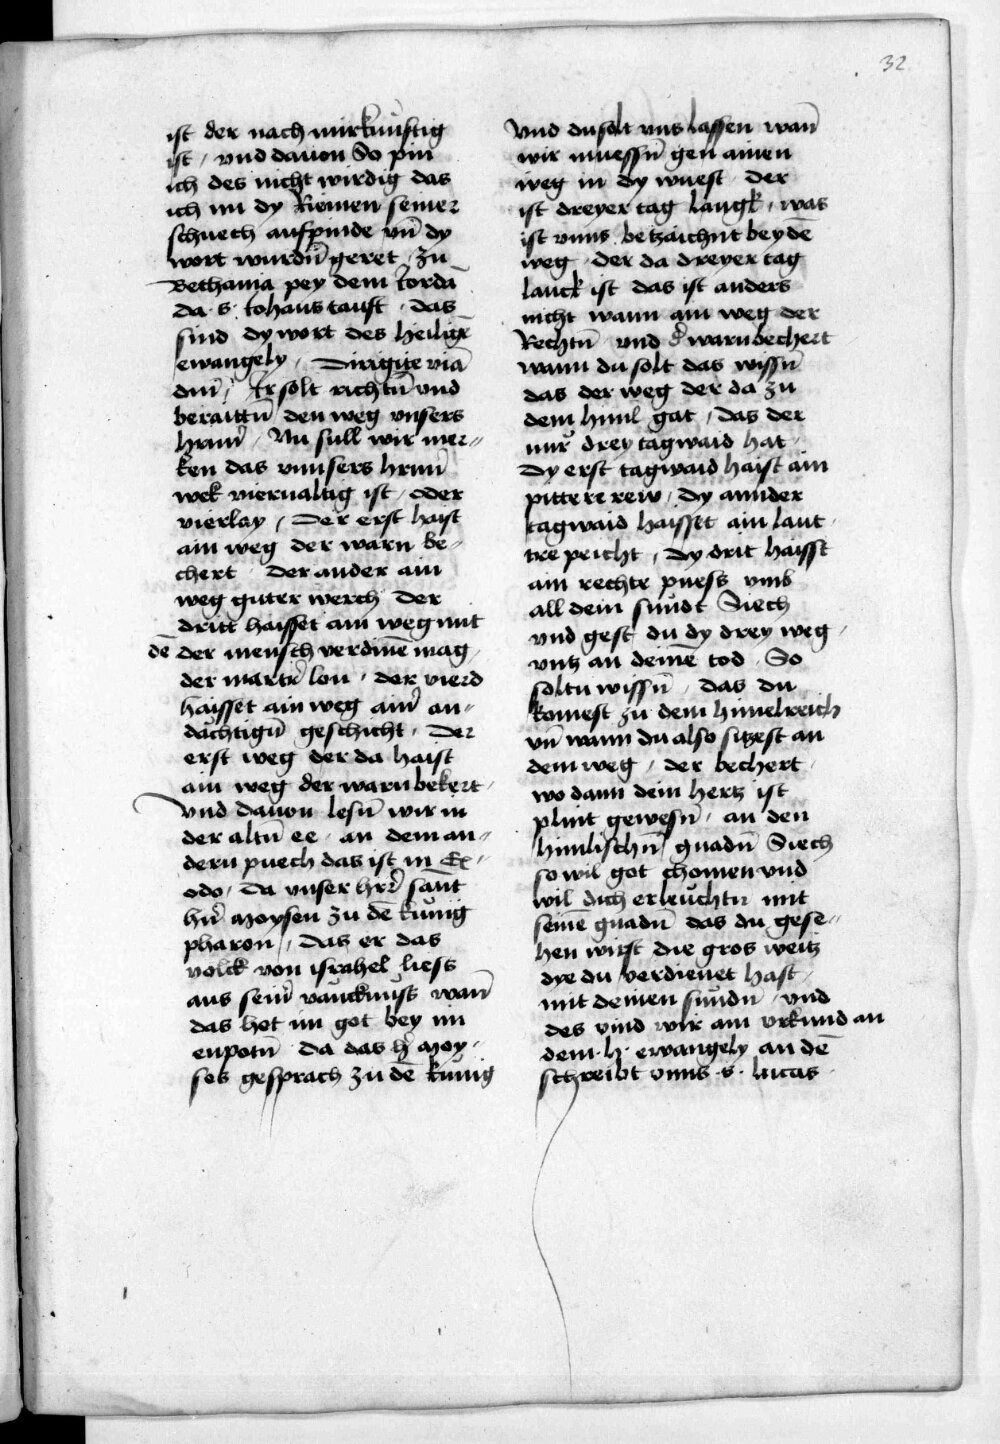 32
ist der nach mir kunftig
ist / vnd dauon So pin
ich des nicht wirdig das
ich im dy Riemen seiner
schuech aufpinde vn̄ dy
wort wurdn̄ geret zu
Bethania pey dem Jordā
da · s · Johans tauft · das
sind dy wort des heilign̄
ewangely / Dirigite viā
dm̄ / Ir solt richtn̄ vnd
beraittn̄ den weg vnsers
hran̄ / Nu sull wir mer-
ken das vnnsers hrnn̄
wek vierualtig ist / oder
vierlay / Der erst haist
ain weg der warn be-
chert · der ander ain
weg guter werch Der
dritt haisset ain weg mit
dē der mensch verdinē mag
der martr̄ lon · der vierd
haisset ain weg ainr̄ an-
dächtign̄ geschicht · Der
erst weg der da haist
ain weg der warn bekert ·
Vnd dauon lesn̄ wir in
der altn̄ ee · an dem an-
dern puech das ist in Ex-
odo · Da vnser hr̄r sant
hn̄ Moysen zu dē kunig
pharon / Das er das
volck von israhel liess
aus seinr̄ vancknuss wan̄
das het im got bey im
enpotn̄ Da das hr̄ Moy-
ses gesprach zu dē kunig
Vnd du solt vns lassen wan̄
wir muessn̄ gen ainen
weg in dy wuest · der
ist dreyer tag langk · was
ist vnns betzaichnt bey dē
weg · der da dreyer tag
lanck ist das ist anders
nicht wann ain weg der
Rechtn̄ vnd dr̄ warn bechert
wann du solt das wissn̄
das der weg der da zu
dem himl gat / das der
nur drey tagwaid hat ·
Dy erst tagwaid haist ain
pittere rew / Dy annder
tagwaid haisset ain laut
tre peicht / Dy drit haisst
ain rechte puess vmb
all dein sundt Siech
vnd gest du dy drey weg ·
vntz an deinē tod · So
soltu wissn̄ · das du
komest zu dem himelreich
vn̄ wann du also sitzest an
dem weg / der bechert ·
wo dann dein hertz ist
plint gewesn̄ · an den
himlischn̄ gnadn̄ Siech
so wil got chomen vnd
wil dich erleuchtn̄ mit
seinē gnadn̄ das du gese-
hen wirst die gros weitz
dye du verdienet hast /
mit deinen sundn̄ / vnd
des vind wir ain vrkund an
dem · h · ewangely an dē
schreibt vnns · s · lucas ·